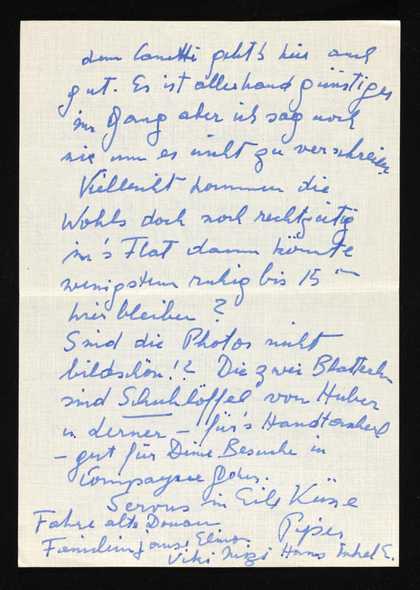 dem Canetti geht's hier auch
gut. Es ist allerhand günstiges
im Gang aber ich sag noch
nix um es nicht zu verschreien
Vielleicht kommen die
Wohls doch noch rechtzeitig
in's Flat dann könnte
wenigstens ruhig bis 15
hier bleiben?
Sind die Photos nicht
bildschön!? Die zwei
sind Schuhlöffel von Huber
u. - für's Handtascherl
- gut für Deine Besuche in
Compagne
Servus in Eile Küsse
Fahre alte Donau
Familien Elmos
Viki Hans Onkel E.